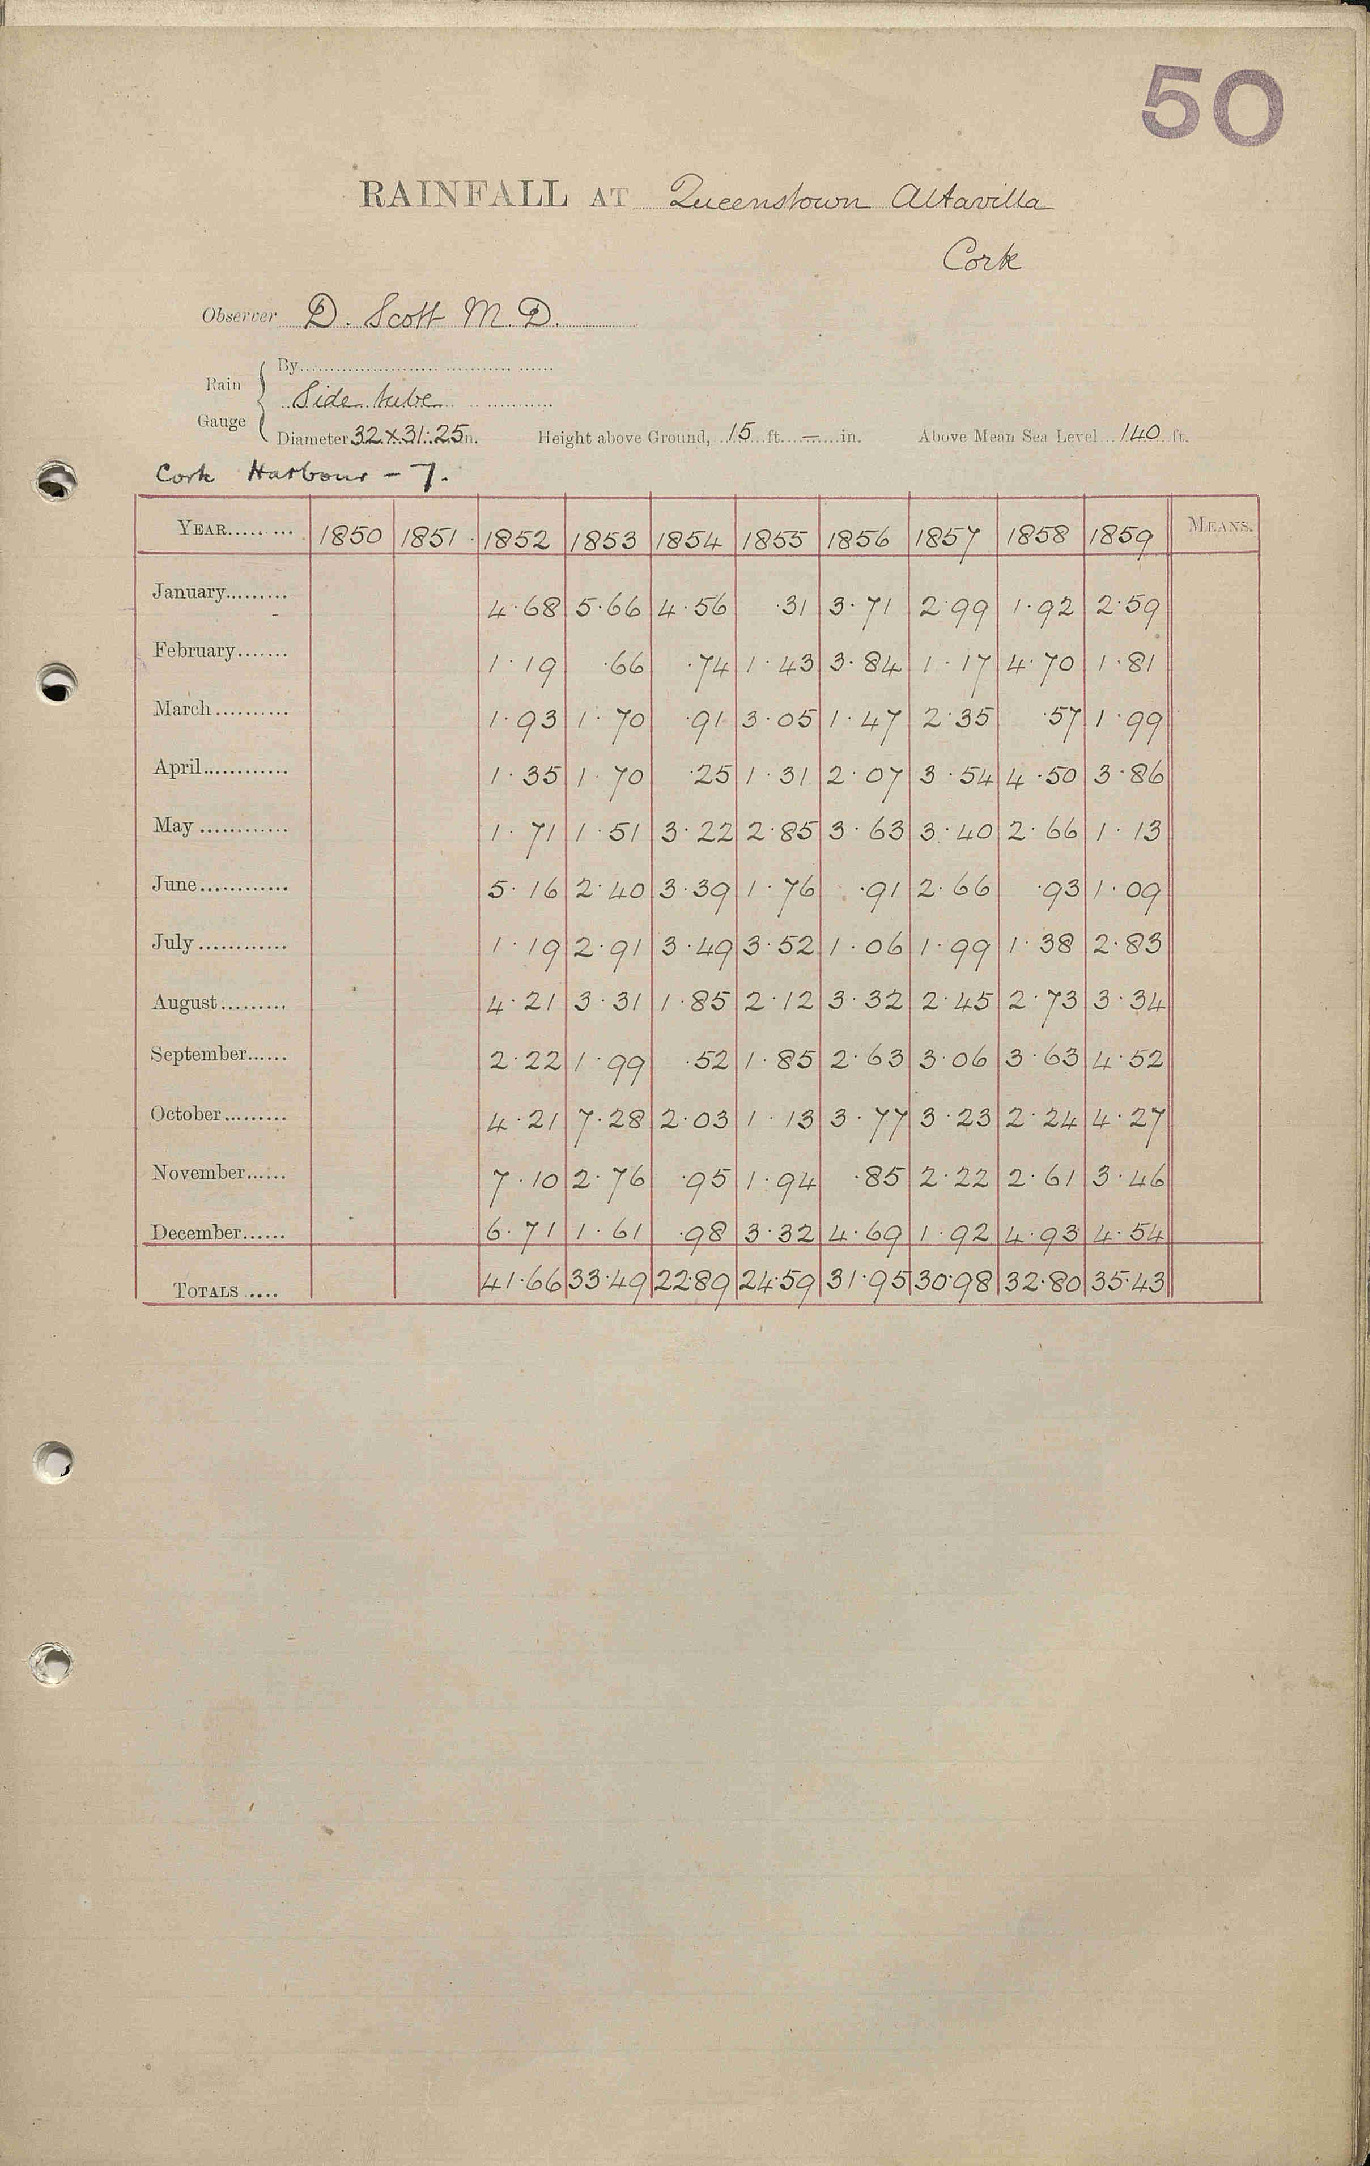 50
RAINFALL AT Queenstown Altavilla
Cork
Observer D. Scott M.D.
Rain Gauge
By
Side tube
Diameter 32 x 31.25 in. Height above Ground, 15 ft. — in. Above Mean Sea Level 140 ft.
Cork Harbour - 7.
YEAR 1850 1851 1852 1853 1854 1855 1856 1857 1858 1859 MEANS.
January 4·68 5·66 4·56 ·31 3·71 2·99 1·92 2·59
February 1·19 ·66 ·74 1·43 3·84 1·17 4·70 1·81
March 1·93 1·70 ·91 3·05 1·47 2·35 ·57 1·99
April 1·35 1·70 ·25 1·31 2·07 3·54 4·50 3·86
May 1·71 1·51 3·22 2·85 3·63 3·40 2·66 1·13
June 5·16 2·40 3·39 1·76 ·91 2·66 ·93 1·09
July 1·19 2·91 3·49 3·52 1·06 1·99 1·38 2·83
August 4·21 3·31 1·85 2·12 3·32 2·45 2·73 3·34
September 2·22 1·99 ·52 1·85 2·63 3·06 3·63 4·52
October 4·21 7·28 2·03 1·13 3·77 3·23 2·24 4·27
November 7·10 2·76 ·95 1·94 ·85 2·22 2·61 3·46
December 6·71 1·61 ·98 3·32 4·69 1·92 4·93 4·54
TOTALS 41·66 33·49 22·89 24·59 31·95 30·98 32·80 35·43